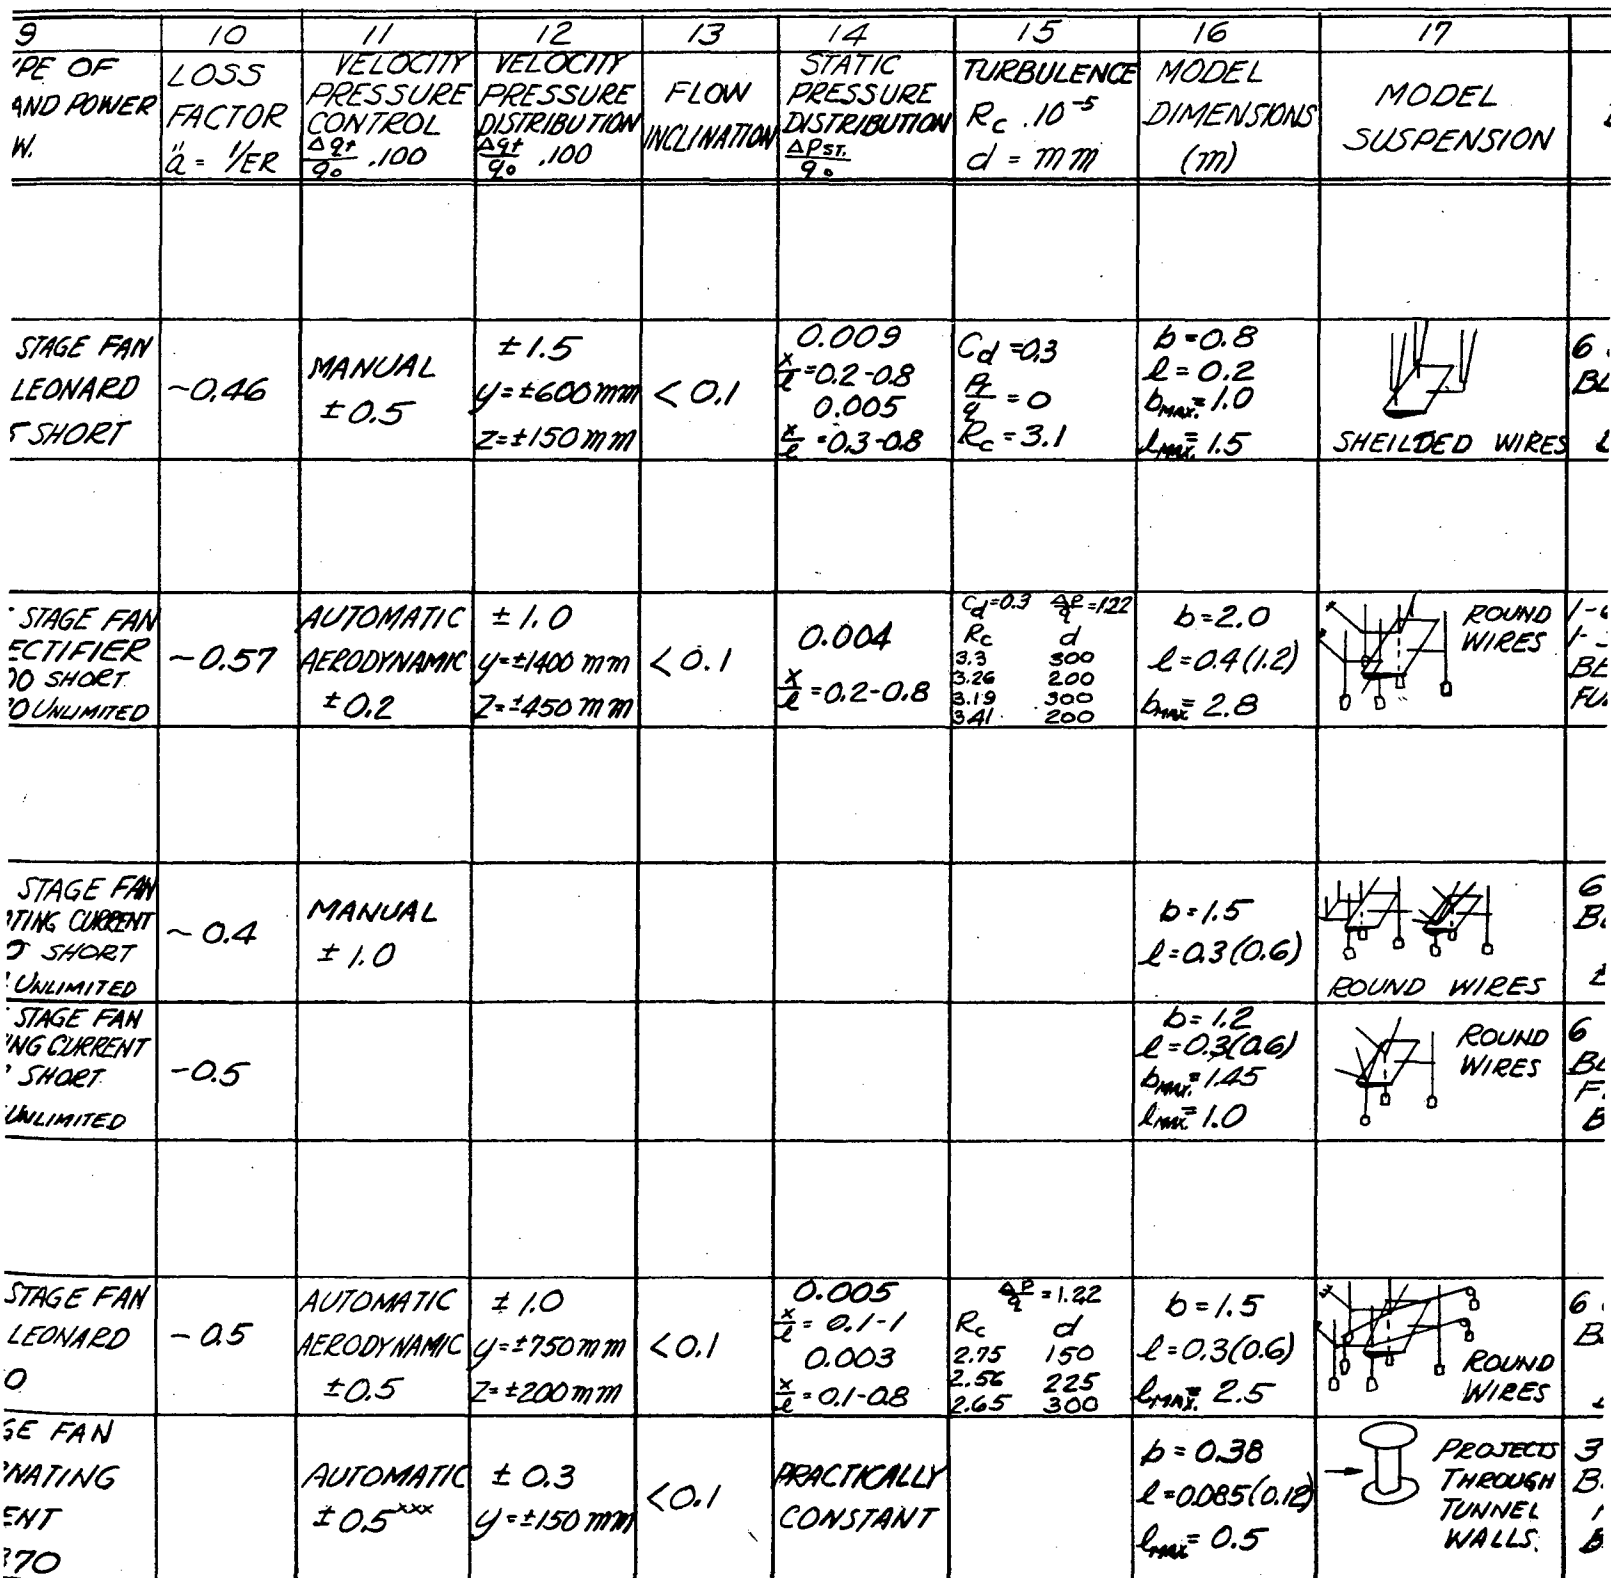 9 10 11 12 13 14 15 16 17
PE OF
AND POWER
W.
LOSS
FACTOR
ä = 1/ER
VELOCITY
PRESSURE
CONTROL
Δq† / q₀ .100
VELOCITY
PRESSURE
DISTRIBUTION
Δq† / q₀ .100
FLOW
INCLINATION
STATIC
PRESSURE
DISTRIBUTION
ΔPST. / q₀
TURBULENCE
Rc . 10⁻⁵
d = mm
MODEL
DIMENSIONS
(m)
MODEL
SUSPENSION
STAGE FAN
LEONARD
SHORT
~0.46
MANUAL
± 0.5
± 1.5
y = ±600 mm
z = ±150 mm
< 0.1
0.009
x/l = 0.2-0.8
0.005
x/l = 0.3-0.8
Cd = 0.3
= 0
Rc = 3.1
b = 0.8
l = 0.2
bMAX. = 1.0
lMAX. = 1.5
SHEILDED WIRES
6
BL
STAGE FAN
ECTIFIER
00 SHORT
0 UNLIMITED
~0.57
AUTOMATIC
AERODYNAMIC
± 0.2
± 1.0
y = ±1400 mm
z = ±450 mm
< 0.1
0.004
x/l = 0.2-0.8
Cd = 0.3 ΔP/q = 1.22
Rc d
3.3 300
3.26 200
3.19 300
3.41 200
b = 2.0
l = 0.4 (1.2)
bMAX = 2.8
ROUND
WIRES
BE
FU
STAGE FAN
TING CURRENT
SHORT
UNLIMITED
~ 0.4
MANUAL
± 1.0
b = 1.5
l = 0.3 (0.6)
ROUND WIRES
6
STAGE FAN
NG CURRENT
SHORT
UNLIMITED
~0.5
b = 1.2
l = 0.3 (0.6)
bMAX. = 1.45
lMAX. = 1.0
ROUND
WIRES
6
BL
F.
B
STAGE FAN
LEONARD
0
~ 0.5
AUTOMATIC
AERODYNAMIC
± 0.5
± 1.0
y = ±750 mm
z = ±200 mm
< 0.1
0.005
x/l = 0.1-1
0.003
x/l = 0.1-0.8
ΔP/q = 1.22
Rc d
2.75 150
2.56 225
2.65 300
b = 1.5
l = 0.3 (0.6)
lMAX. = 2.5
ROUND
WIRES
6
B
GE FAN
NATING
ENT
370
AUTOMATIC
± 0.5xxx
± 0.3
y = ±150 mm
< 0.1
PRACTICALLY
CONSTANT
b = 0.38
l = 0.085 (0.12)
lMAX = 0.5
PROJECTS
THROUGH
TUNNEL
WALLS.
3
B.
B